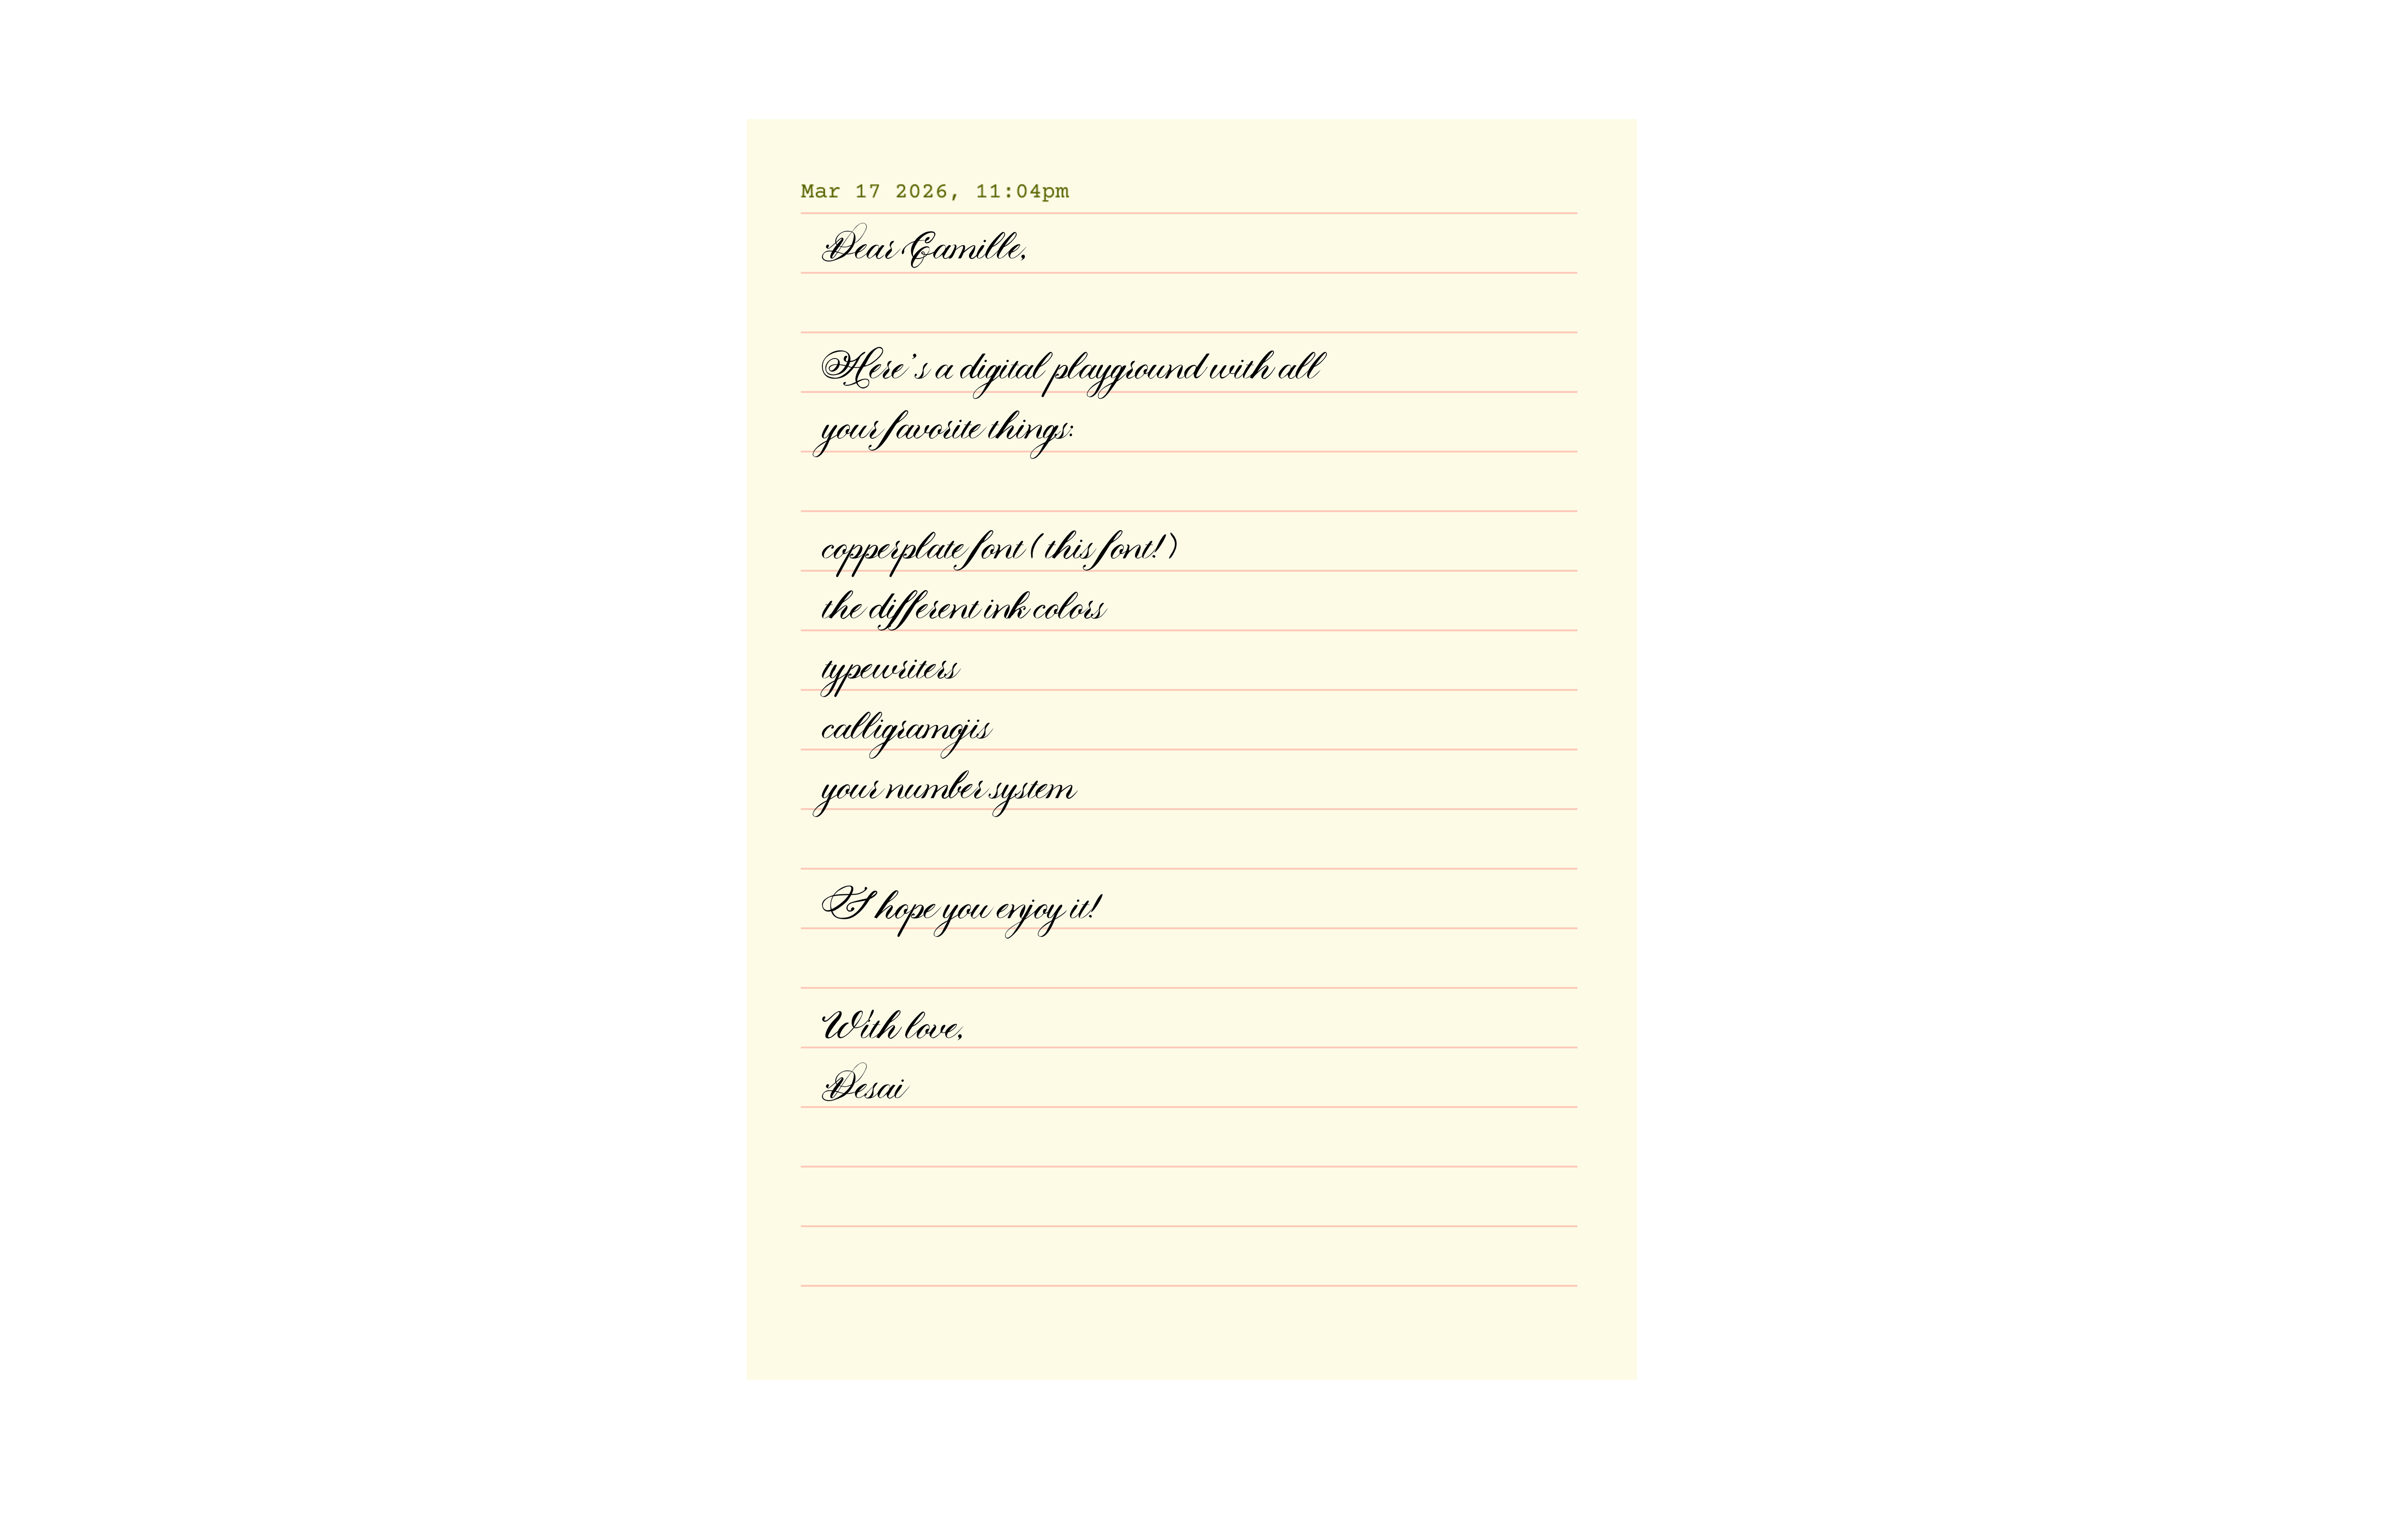 Mar 17 2026, 11:04pm
Dear Camille,
Here's a digital playground with all
your favorite things:
copperplate font (this font!)
the different ink colors
typewriters
calligramojis
your number system
I hope you enjoy it!
With love,
Desai